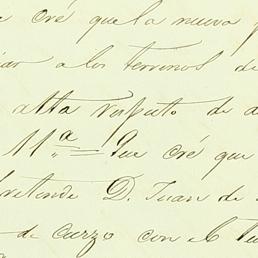 e cré que la nueva
a los terrenos de
alta respecto de
11ª = Que cré que
pretende D. Juan de
de curzo con el